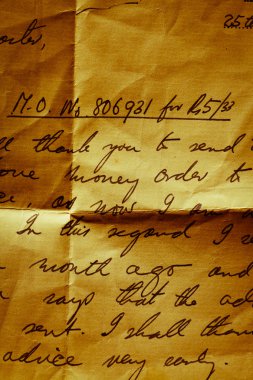 25.
M.O. No. 806931 for Rs 5/33
thank you to send
money order to
, as now I am
In this regard I
month ago and
says that the ad
sent. I shall than
advice very early.